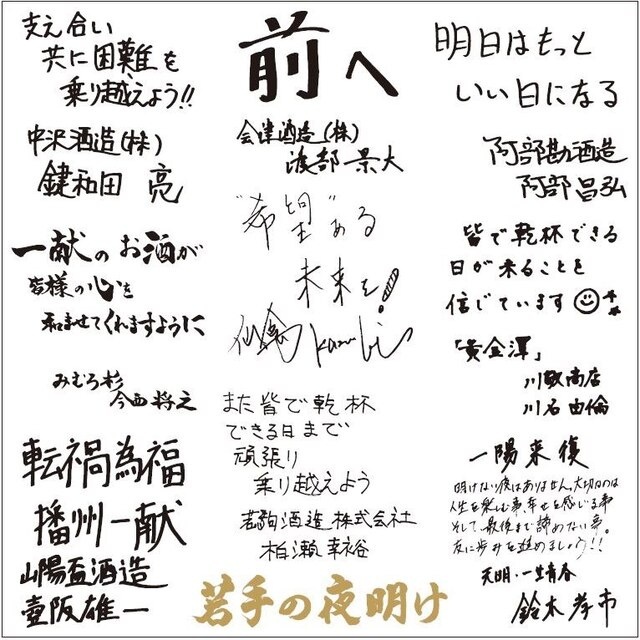 支え合い
共に困難を
乗り越えよう!!
中沢酒造(株)
鍵和田 亮
一献のお酒が
皆様の心を
和ませてくれますように
みむろ杉
今西将之
転禍為福
播州一献
山陽盃酒造
壺阪雄一
前へ
会津酒造(株)
渡部景大
"希望"ある
未来を!
仙禽
また皆で乾杯
できる日まで
頑張り
乗り越えよう
若駒酒造株式会社
柏瀬幸裕
明日はもっと
いい日になる
阿部勘酒造
阿部昌弘
皆で乾杯できる
日が来ることを
信じています
「黄金澤」
川敬商店
川名由倫
一陽来復
明けない夜はありません。大切なのは
人生を楽しむ事、幸せを感じる事
そして、最後まで諦めない事。
友に歩みを進めましょう!!
天明・一生青春
鈴木孝市
若手の夜明け